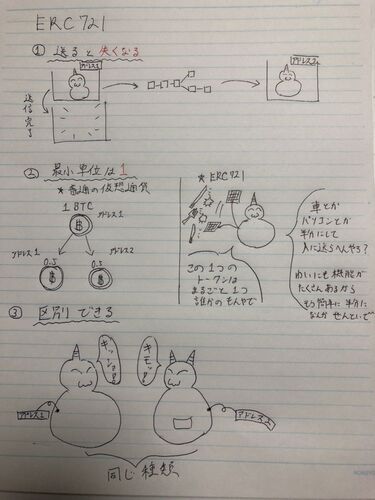 ERC 721
① 送ると失くなる
アドレス1
アドレス2
送信完了
② 最小単位は1
★普通の仮想通貨
1 BTC
アドレス1
アドレス1
アドレス2
0.5
0.5
★ERC721
この1つの
トークンは
まるごと1つ
誰かのもんやで
車とか
パソコンとか
半分にして
人に送らへんやろ?
わいにも機能が
たくさんあるから
そう簡単に半分に
なんかせんといて
③ 区別できる
キッショ
キモッ
アドレス1
アドレス2
同じ種類